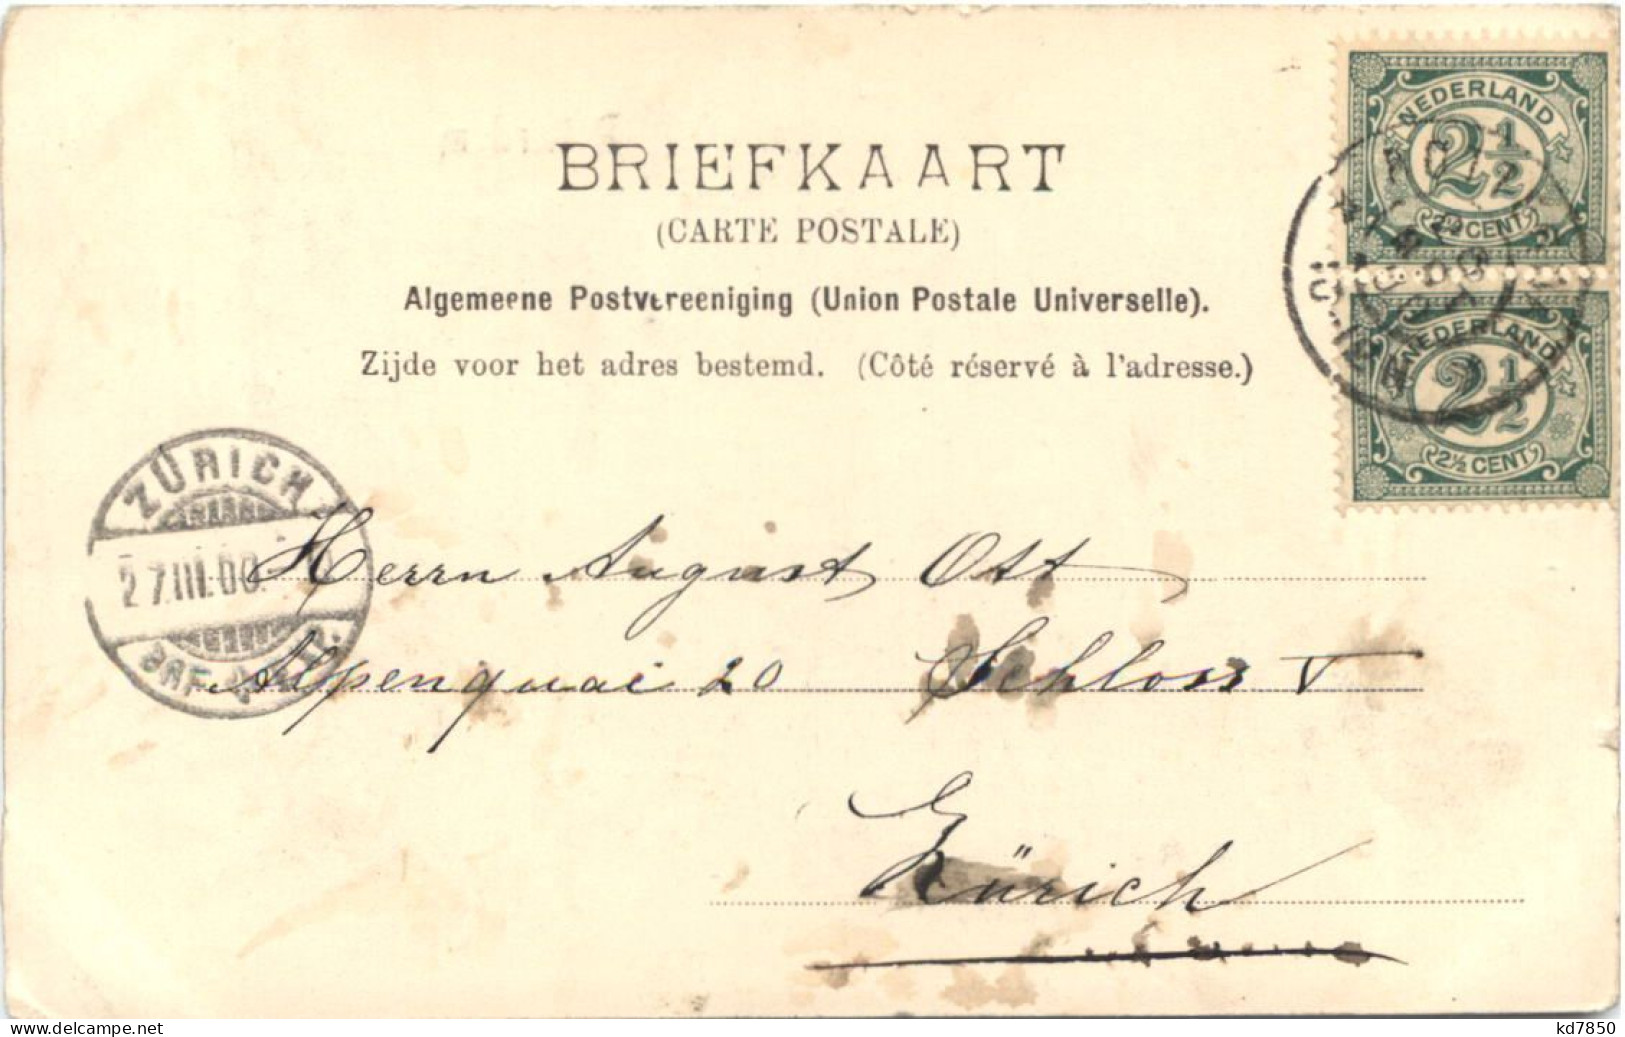 BRIEFKAART
(CARTE POSTALE)
Algemeene Postvereeniging (Union Postale Universelle).
Zijde voor het adres bestemd. (Côté réservé à l'adresse.)
NEDERLAND
2½
2½ CENT
NEDERLAND
2½
2½ CENT
ZÜRICH
27.III.00.
BRF.
Herrn August Ott
Alpenquai 20 Schloss
Zürich
delcampe.net
kd7850